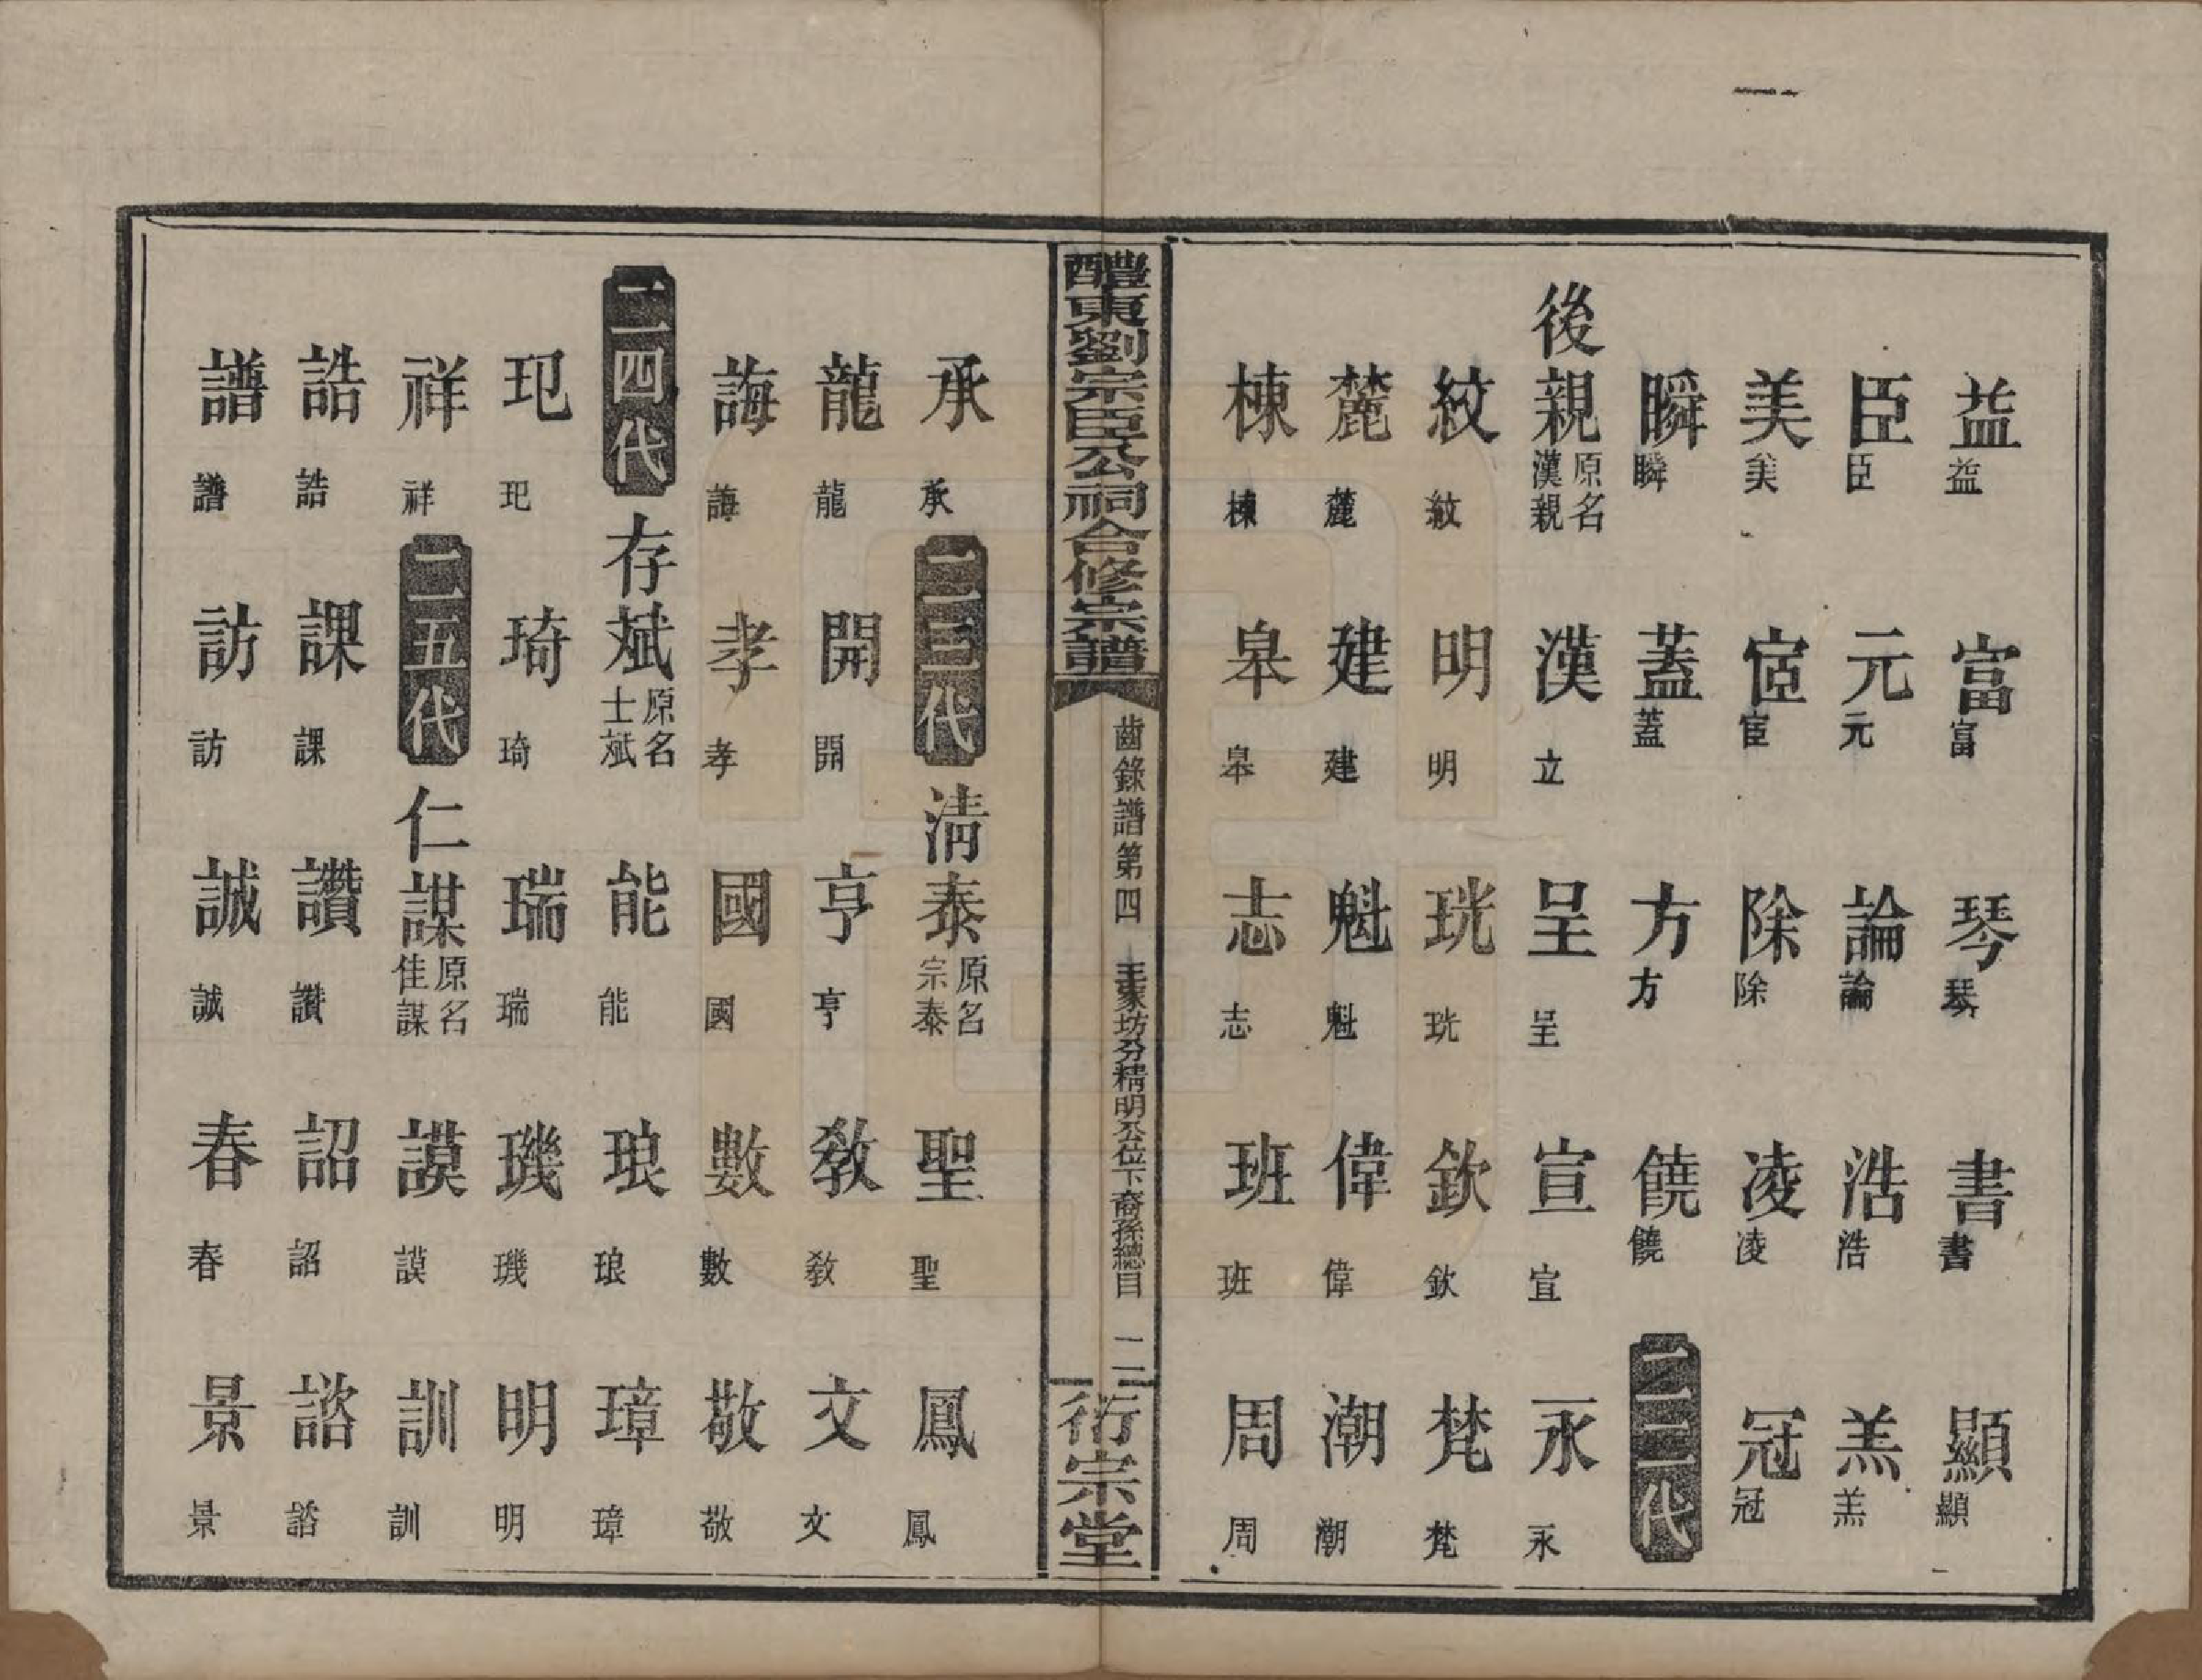 益益　富富　琴琴　書書　顯顯
臣臣　元元　論論　浩浩　羔羔
美美　宦宦　除除　凌凌　冠冠
瞬瞬　蓋蓋　方方　饒饒　二二代
後親原名漢親　漢立　呈呈　宣宣　永永
紋紋　明明　珖珖　欽欽　梵梵
麓麓　建建　魁魁　偉偉　潮潮
棟棟　皋皋　志志　班班　周周
醴東劉宗臣公祠合修宗譜　齒錄譜第四　王家坊分精明公位下裔孫總目　二　衍宗堂
承承　二三代　清泰原名宗泰　聖聖　鳳鳳
龍龍　開開　亨亨　敎敎　文文
誨誨　孝孝　國國　數數　敬敬
二四代　存斌原名士斌　能能　琅琅　璋璋
玘玘　琦琦　瑞瑞　璣璣　明明
祥祥　二五代　仁謀原名佳謀　謨謨　訓訓
誥誥　課課　讚讚　詔詔　諮諮
譜譜　訪訪　誠誠　春春　景景